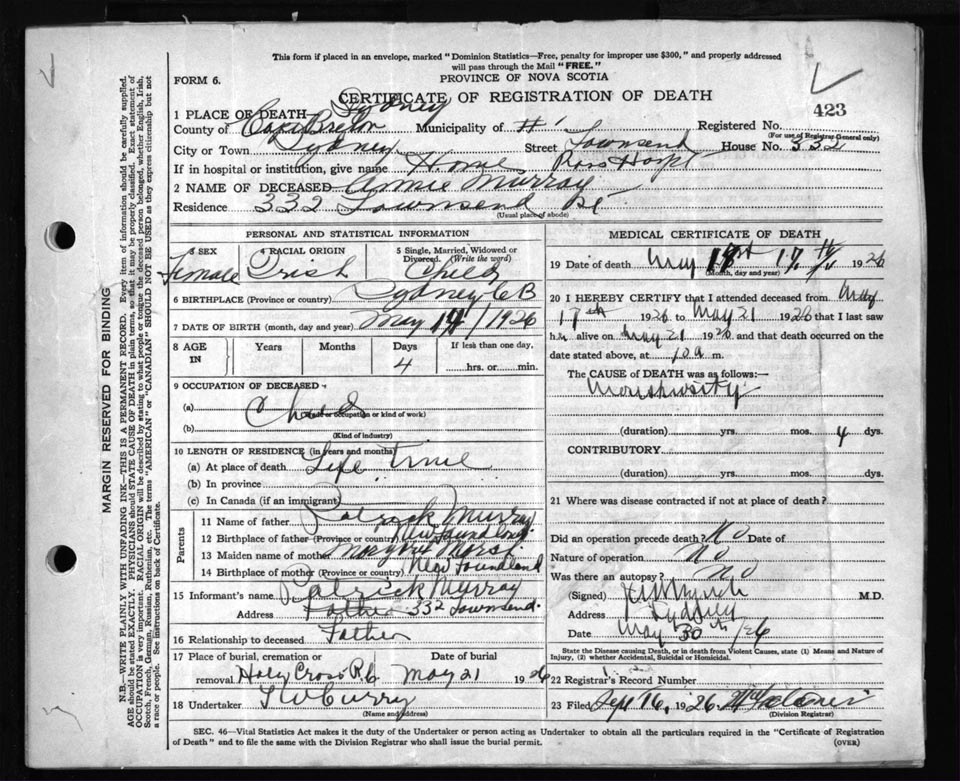 This form if placed in an envelope, marked "Dominion Statistics—Free, penalty for improper use $300," and properly addressed
will pass through the Mail "FREE."
FORM 6.
PROVINCE OF NOVA SCOTIA
CERTIFICATE OF REGISTRATION OF DEATH
423
1 PLACE OF DEATH Sydney
County of Cape Breton Municipality of #1 Registered No.
(For use of Registrar General only)
City or Town Sydney Street Townsend House No. 332
If in hospital or institution, give name Home Ross Hospt
2 NAME OF DECEASED Annie Murray
Residence 332 Townsend St
(Usual place of abode)
PERSONAL AND STATISTICAL INFORMATION
3 SEX Female
4 RACIAL ORIGIN Irish
5 Single, Married, Widowed or Divorced. (Write the word) Child
6 BIRTHPLACE (Province or country) Sydney C B
7 DATE OF BIRTH (month, day and year) May 14/1926
8 AGE IN Years Months Days 4 If less than one day. hrs. or min.
9 OCCUPATION OF DECEASED
(a) Child
(Trade or occupation or kind of work)
(b)
(Kind of industry)
10 LENGTH OF RESIDENCE (in years and months)
(a) At place of death Life Time
(b) In province
(c) In Canada (if an immigrant)
Parents
11 Name of father Patrick Murray
12 Birthplace of father (Province or country) Newfoundland
13 Maiden name of mother
14 Birthplace of mother (Province or country) New Foundland
15 Informant's name Patrick Murray
Address Father 332 Townsend.
16 Relationship to deceased Father
17 Place of burial, cremation or removal Holy Cross Date of burial May 21 1926
18 Undertaker T W Curry
(Name and address)
MEDICAL CERTIFICATE OF DEATH
19 Date of death May 17th 1926
(Month, day and year)
20 I HEREBY CERTIFY that I attended deceased from May
17th 1926 to May 21 1926 that I last saw
her alive on May 21 1926 and that death occurred on the
date stated above, at 10 a m.
The CAUSE OF DEATH was as follows:—
(duration) yrs. mos. 4 dys.
CONTRIBUTORY
(duration) yrs. mos. dys.
21 Where was disease contracted if not at place of death?
Did an operation precede death? No Date of
Nature of operation No
Was there an autopsy? No
(Signed) Lynch M.D.
Address Sydney
Date May 30th/26
State the Disease causing Death, or in death from Violent Causes, state (1) Means and Nature of
Injury, (2) whether Accidental, Suicidal or Homicidal.
22 Registrar's Record Number
23 Filed Sept 16, 1926
(Division Registrar)
SEC. 46—Vital Statistics Act makes it the duty of the Undertaker or person acting as Undertaker to obtain all the particulars required in the "Certificate of Registration
of Death" and to file the same with the Division Registrar who shall issue the burial permit.
(OVER)
MARGIN RESERVED FOR BINDING
N.B.—WRITE PLAINLY WITH UNFADING INK—THIS IS A PERMANENT RECORD. Every item of information should be carefully supplied.
AGE should be stated EXACTLY. PHYSICIANS should STATE CAUSE OF DEATH in plain terms, so that it may be properly classified. Exact statement of
OCCUPATION is very important. RACIAL ORIGIN will be described by stating to what people or tongue the deceased person belonged, whether English, Irish,
Scotch, French, German, Russian, Ruthenian, etc. The terms "AMERICAN" or "CANADIAN" SHOULD NOT BE USED as they express citizenship but not
a race or people. See instructions on back of Certificate.